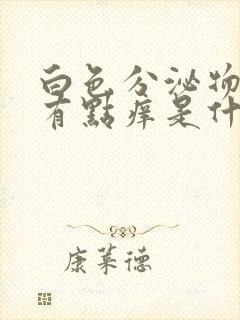 白色分泌物
有點痒是什
康莱德